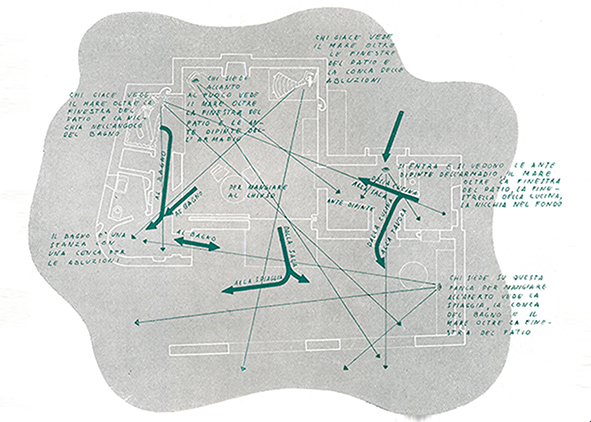 CHI GIACE VEDE
IL MARE OLTRE
LE FINESTRE
DEL PATIO E
LA CONCA DELLE
ABLUZIONI
CHI GIACE VEDE
IL MARE OLTRE LA
FINESTRA DEL
PATIO E LA NIC-
CHIA NELL'ANGOLO
DEL BAGNO
CHI SIEDE
ACCANTO
AL FUOCO VEDE
IL MARE OLTRE
LA FINESTRA DEL
PATIO E LE AN-
TE DIPINTE DEL-
L'ARMADIO
SI ENTRA E SI VEDONO LE ANTE
DIPINTE DELL'ARMADIO, IL MARE
OLTRE LA FINESTRA
DEL PATIO, LA FINE-
STRELLA DELLA CUCINA,
LA NICCHIA NEL FONDO
AL BAGNO
AL BAGNO
PER MANGIARE
AL CHIUSO
ANTE DIPINTE
DALLA CUCINA
ALLA SALA
DALLA CUCINA
ALLA TAVOLA
IL BAGNO E' UNA
STANZA CON
UNA CONCA PER
LE ABLUZIONI
AL BAGNO
DALLA SALA
ALLA SPIAGGIA
CHI SIEDE SU QUESTA
PANCA PER MANGIARE
ALL'APERTO VEDE LA
SPIAGGIA, LA CONCA
DEL BAGNO E IL
MARE OLTRE LA FINE-
STRA DEL PATIO